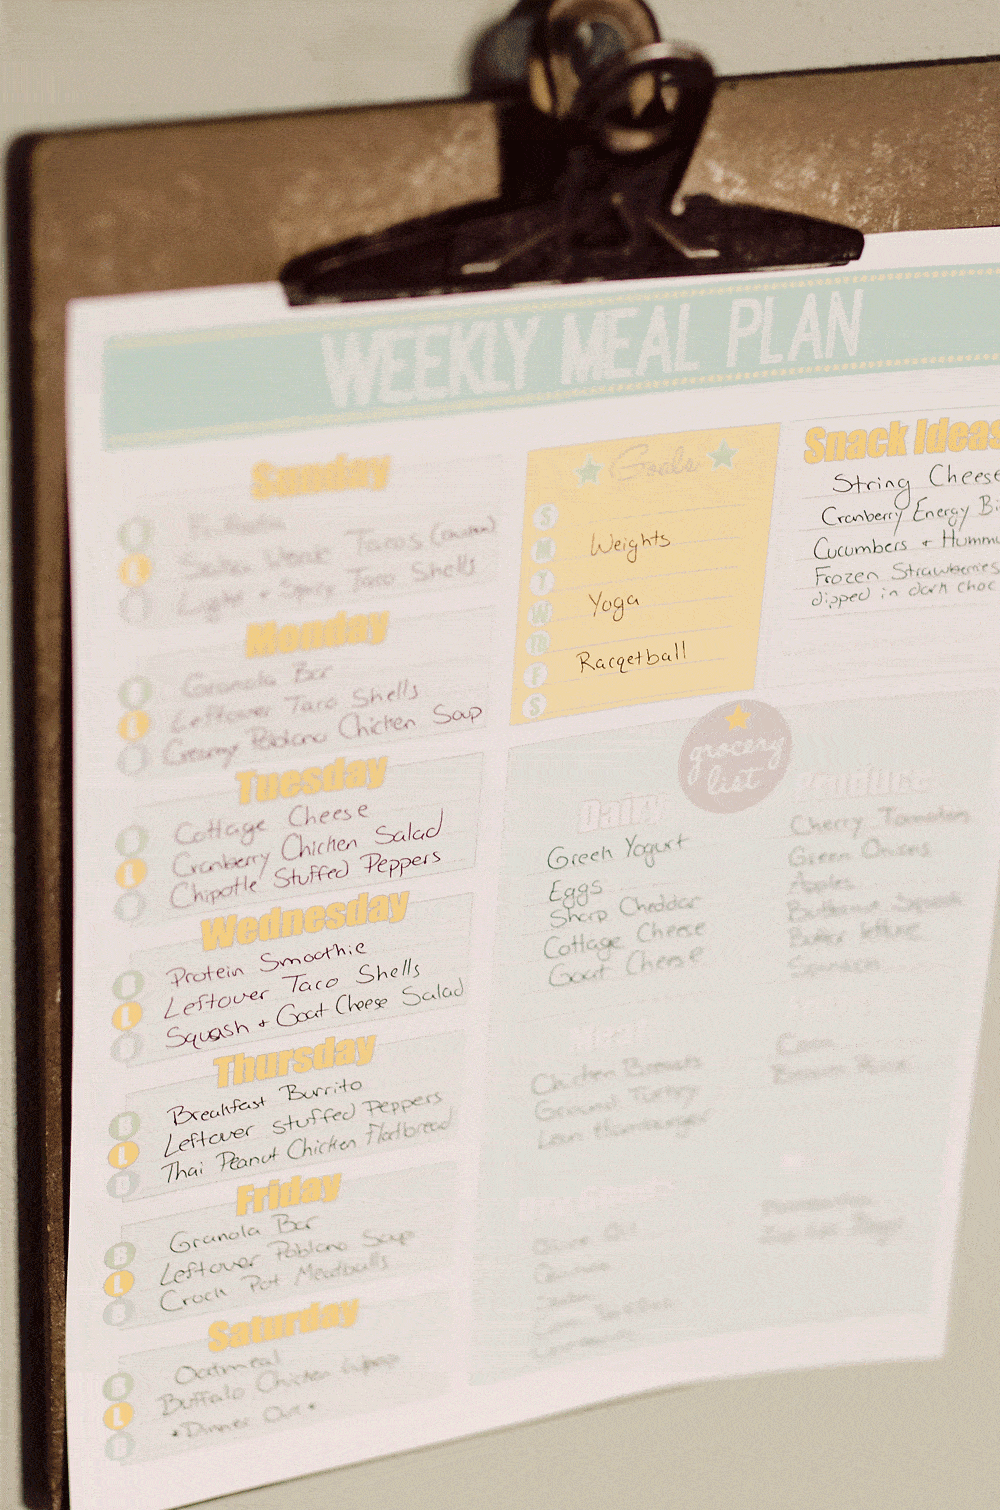 WEEKLY MEAL PLAN
Sunday
B
L Tacos
D Light + Spicy Taco Shells
Monday
B Granola Bar
L Leftover Taco Shells
D Creamy Poblano Chicken Soup
Tuesday
B Cottage Cheese
L Cranberry Chicken Salad
D Chipotle Stuffed Peppers
Wednesday
B Protein Smoothie
L Leftover Taco Shells
D Squash + Goat Cheese Salad
Thursday
B Breakfast Burrito
L Leftover Stuffed Peppers
D Thai Peanut Chicken Flatbread
Friday
B Granola Bar
L Leftover Poblano Soup
D Crock Pot Meatballs
Saturday
B Oatmeal
L Buffalo Chicken Wraps
D •Dinner Out•
Goals
S
M Weights
T
W Yoga
TH
F Racqetball
S
Snack Ideas
String Cheese
Cranberry Energy Bi
Cucumbers + Hummu
Frozen Strawberries
dipped in dark choc
grocery
list
Dairy
Greek Yogurt
Eggs
Sharp Cheddar
Cottage Cheese
Goat Cheese
Chicken Breasts
Ground Turkey
Lean Hamburger
Olive Oil
Produce
Cherry Tomatoes
Green Onions
Apples
Butternut Squash
Butter lettuce
Spinach
Corn
Brown Rice